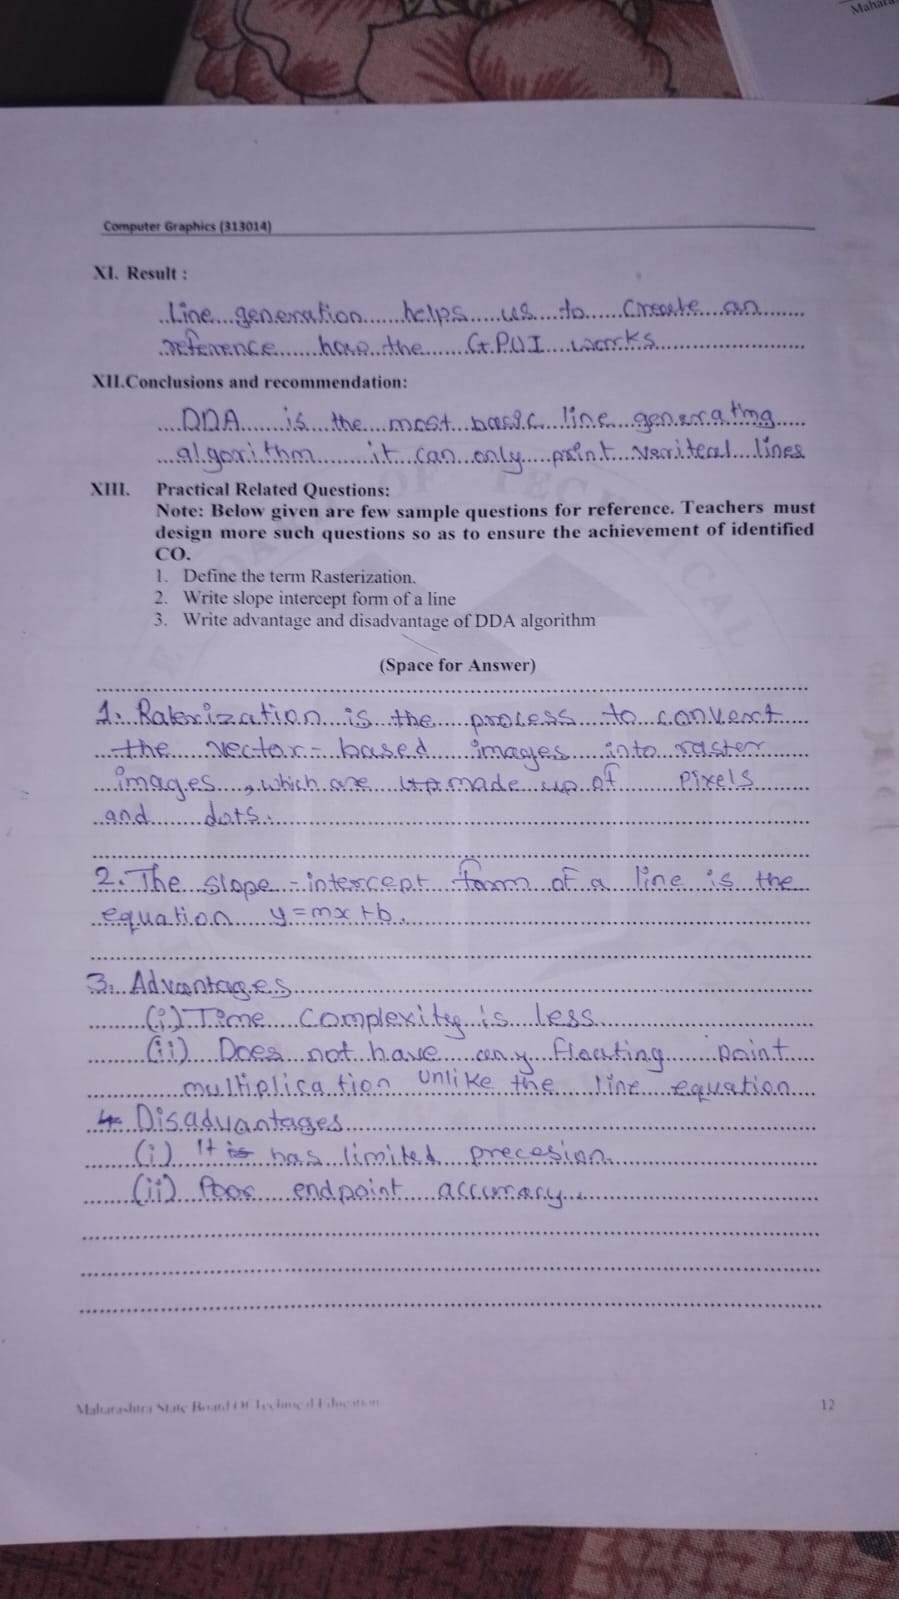 Mahara
Computer Graphics (313014)
XI. Result :
Line generation helps us to create an
reference how the G.P.U I works
XII.Conclusions and recommendation:
DDA is the most basic line generating
algorithm it can only print veritcal lines
XIII. Practical Related Questions:
Note: Below given are few sample questions for reference. Teachers must
design more such questions so as to ensure the achievement of identified
CO.
1. Define the term Rasterization.
2. Write slope intercept form of a line
3. Write advantage and disadvantage of DDA algorithm
(Space for Answer)
1. Raterization is the process to convert
the vector-based images into raster
images, which are made up of pixels
and dots.
2. The slope-intercept form of a line is the
equation y=mx+b.
3. Advantages
(i) Time complexity is less
(ii) Does not have any floating point
multiplication unlike the line equation
Disadvantages
(i) It is has limited precesion
(ii) Poor endpoint accurracy.
Maharashtra State Board Of Technical Education 12